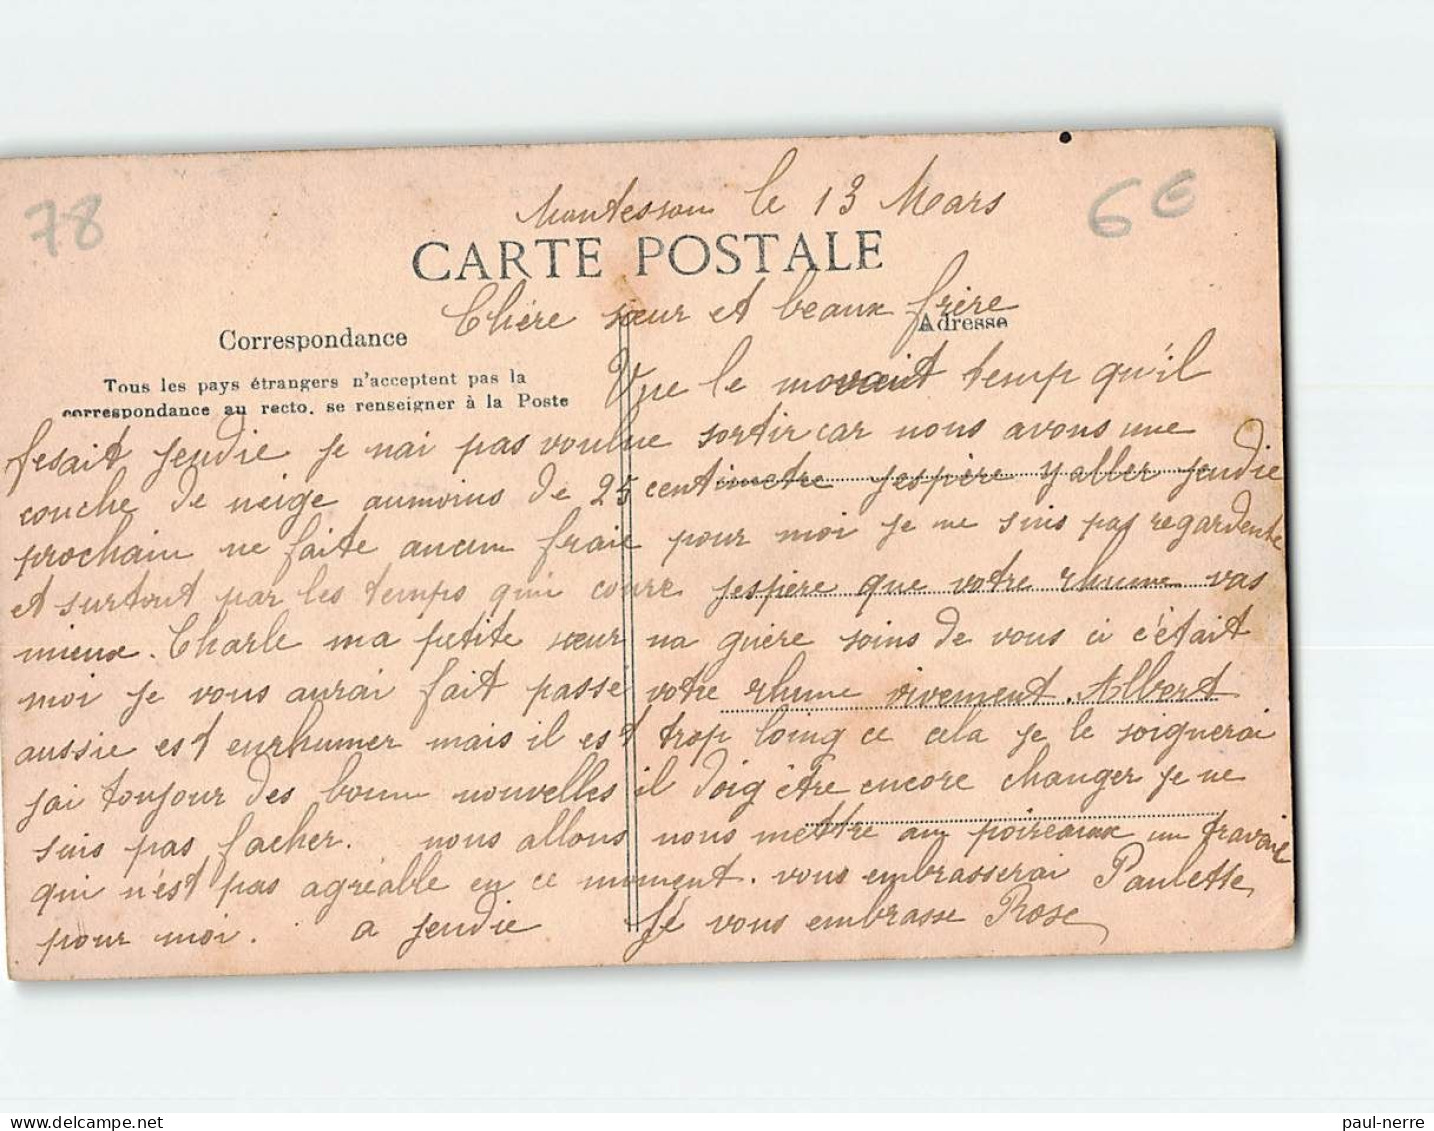 78
6€
Montesson le 13 Mars
CARTE POSTALE
Chère sœur et beaux frère
Correspondance
Adresse
Tous les pays étrangers n'acceptent pas la
correspondance au recto, se renseigner à la Poste
Vue le movait temp qu'il
fesait jeudie je nai pas voulue sortir car nous avons une
couche de neige aumoins de 25 centimetre j'espère y aller jeudie
prochain ne faite aucun fraie pour moi je ne suis pas regardente
et surtout par les temps qui coure j'espère que votre rhume vas
mieux. Charle ma petite sœur na guère soins de vous ci c'était
moi je vous aurai fait passé votre rhume vivement. Albert
aussie est enrhumer mais il est trop loing ce cela je le soignerai
jai toujour des bonne nouvelles il doig être encore changer je ne
suis pas facher. nous allons nous mettre au poireaux un travaie
qui n'est pas agréable en ce moment. vous embrasserai Paulette
pour moi. a jeudie Jé vous embrasse Rose
paul-nerre